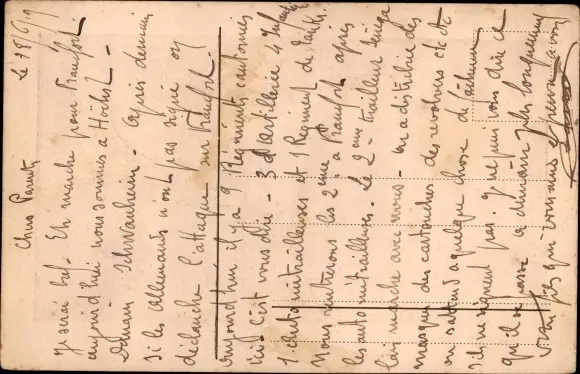 Le 18/6/19
Chers Parents
Je serai bref. En marche pour Francfort
aujourd'hui nous sommes à Höchst -
Demain Schwanheim - après demain
si les Allemands n'ont pas signé on
déclanche l'attaque sur Francfort.
Aujourd'hui il y a 9 Régiments cantonnés
ici c'est vous dire - 3 d'Artillerie 4 Infanterie
1 d'auto mitrailleuses et 1 Regiment de
Nous rentrerons les 2ème à Francfort après
les auto mitrailleuses. Le 2ème tirailleur
marche avec nous - on a distribué des
masques des cartouches des revolvers etc etc
on s'attend à quelque chose
s'ils ne signent pas. Je ne puis vous dire ce
qu'il se passe plus longuement
votre fils qui vous aime et pense à vous